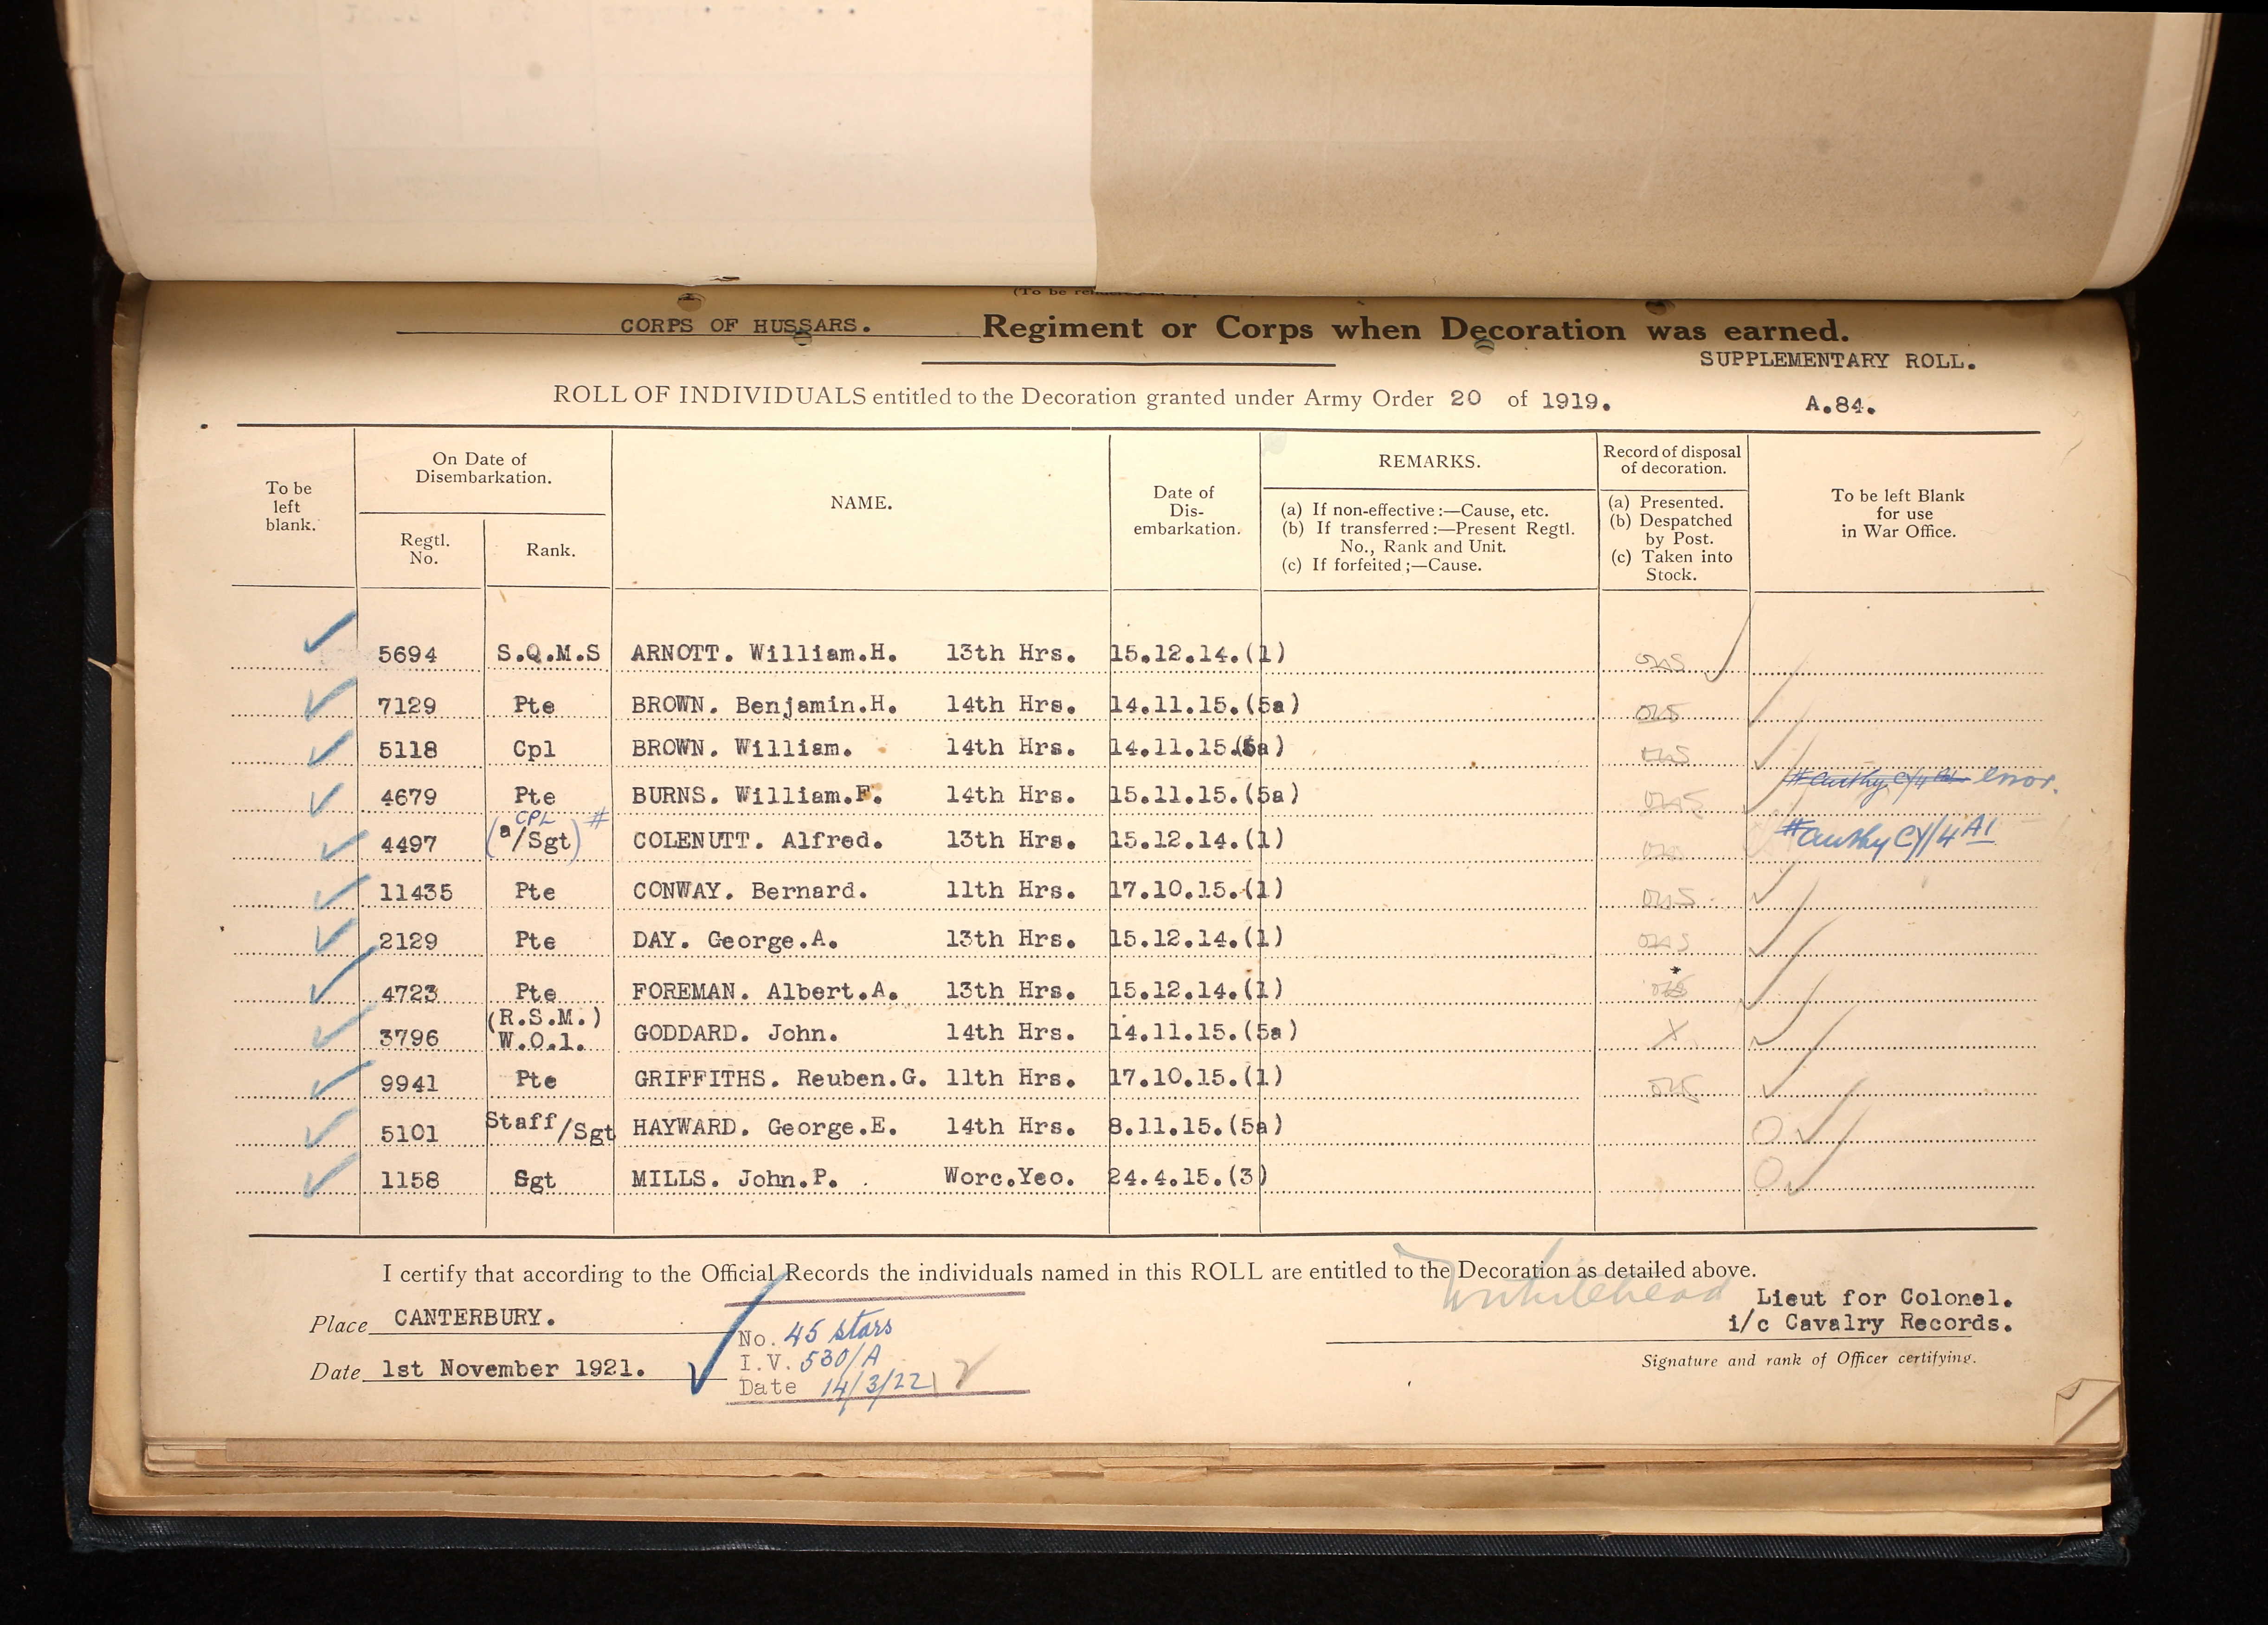 CORPS OF HUSSARS. Regiment or Corps when Decoration was earned.
SUPPLEMENTARY ROLL.
ROLL OF INDIVIDUALS entitled to the Decoration granted under Army Order 20 of 1919. A.84.
To be left blank.
On Date of Disembarkation.
Regtl. No.
Rank.
NAME.
Date of Dis-
embarkation.
REMARKS.
(a) If non-effective:—Cause, etc.
(b) If transferred:—Present Regtl.
No., Rank and Unit.
(c) If forfeited;—Cause.
Record of disposal
of decoration.
(a) Presented.
(b) Despatched
by Post.
(c) Taken into
Stock.
To be left Blank
for use
in War Office.
5694 S.Q.M.S ARNOTT. William.H. 13th Hrs. 15.12.14.(1)
7129 Pte BROWN. Benjamin.H. 14th Hrs. 14.11.15.(5a)
5118 Cpl BROWN. William. 14th Hrs. 14.11.15.(5a)
4679 Pte BURNS. William.F. 14th Hrs. 15.11.15.(5a) error.
CPL #
4497 (a/Sgt) COLENUTT. Alfred. 13th Hrs. 15.12.14.(1) # authy CY/4 A1
11435 Pte CONWAY. Bernard. 11th Hrs. 17.10.15.(1)
2129 Pte DAY. George.A. 13th Hrs. 15.12.14.(1)
4723 Pte FOREMAN. Albert.A. 13th Hrs. 15.12.14.(1)
(R.S.M.)
3796 W.O.1. GODDARD. John. 14th Hrs. 14.11.15.(5a) X
9941 Pte GRIFFITHS. Reuben.G. 11th Hrs. 17.10.15.(1)
5101 Staff/Sgt HAYWARD. George.E. 14th Hrs. 8.11.15.(5a)
1158 Sgt MILLS. John.P. Worc.Yeo. 24.4.15.(3)
I certify that according to the Official Records the individuals named in this ROLL are entitled to the Decoration as detailed above.
Whitehead
Lieut for Colonel.
i/c Cavalry Records.
Signature and rank of Officer certifying.
Place CANTERBURY.
Date 1st November 1921.
No. 45 stars
I.V. 530/A
Date 14/3/22